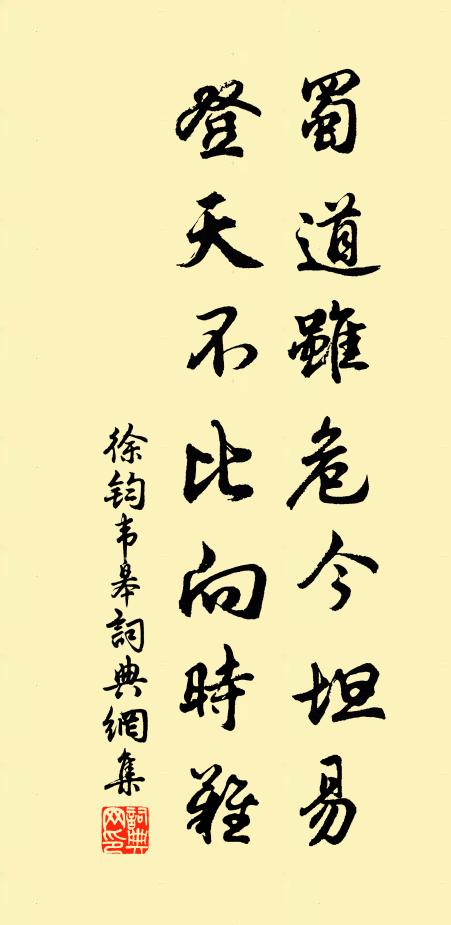 蜀道雖危今坦易
登天不比向時難
徐鈞韦皋詞典網集
詞典网印